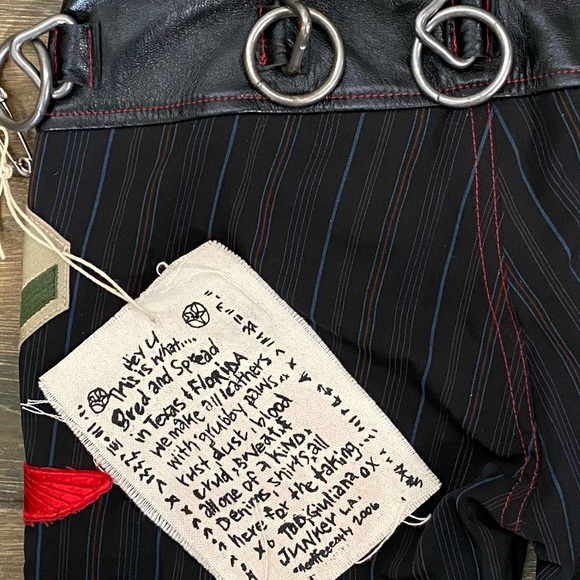 Hey U
This is what...
Bred and Spread
in Texas & FLORIDA
we make all leathers
with grubby paws...
rust dust blood
crud, & sweat &
all one of a kind.
Denims, shirts, all
here for the taking...
xo TDB, Giuliana ox
JUNKer L.A.
2006